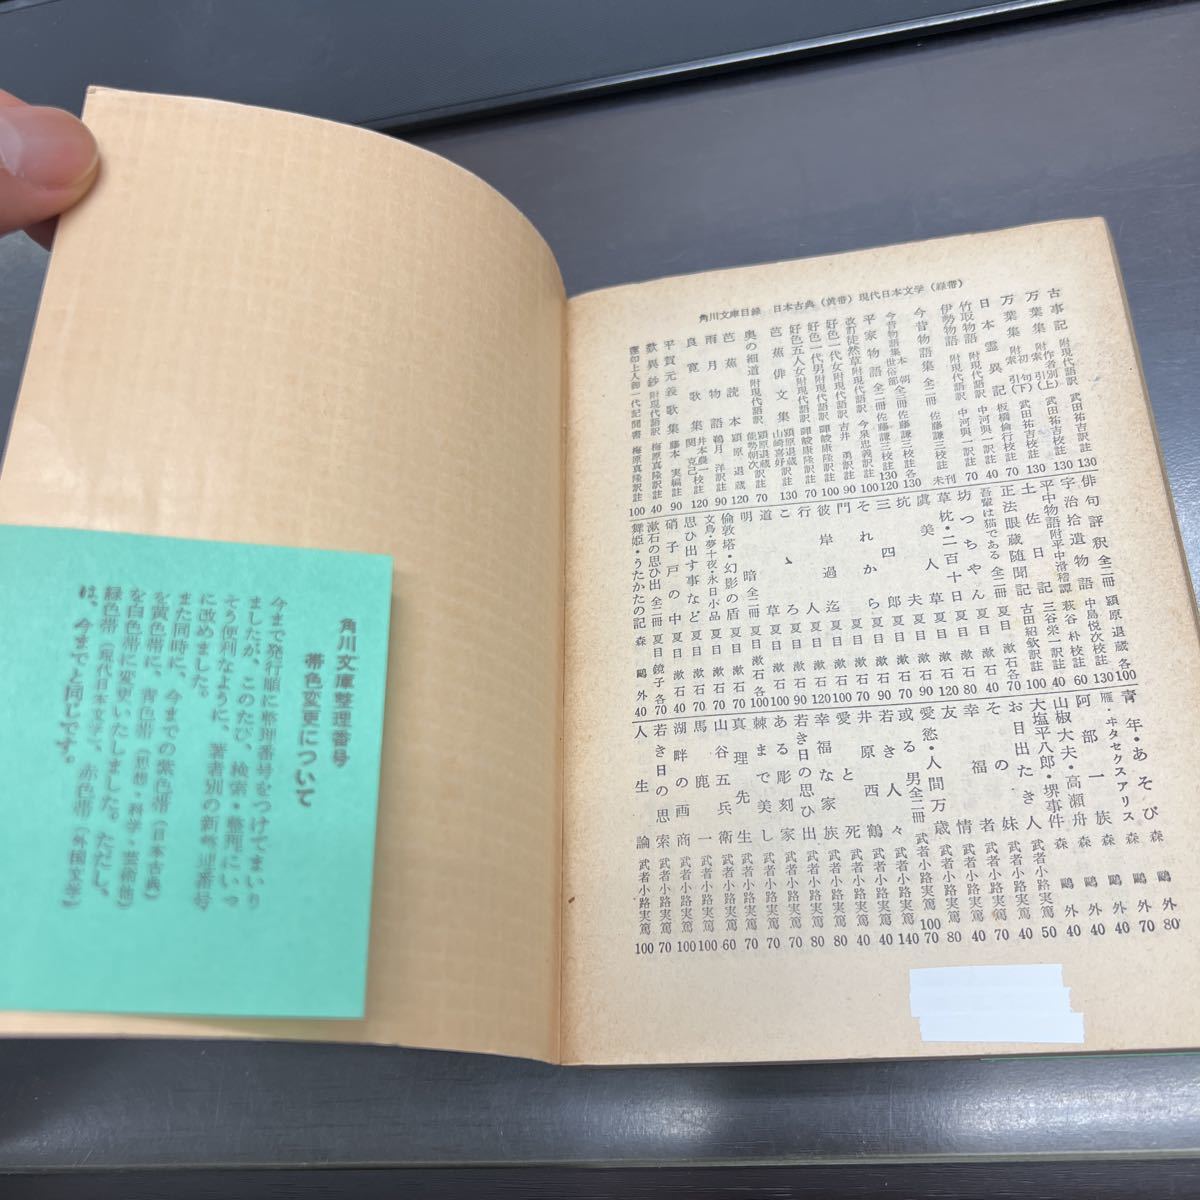 角川文庫整理番号
帯色変更について
今まで発行順に整理番号をつけてまいり
ましたが、このたび、検索・整理にいっ
そう便利なように、著者別の新整理番号
に改めました。
また同時に、今までの紫色帯（日本古典）
を黄色帯に、青色帯（思想・科学・芸術他）
を白色帯に変更いたしました。ただし、
緑色帯（現代日本文学）、赤色帯（外国文学）
は、今までと同じです。
角川文庫目録 日本古典（黄帯）現代日本文学（緑帯）
古事記 附現代語訳 武田祐吉校註 130
万葉集 附索引（作者別上） 武田祐吉校註 130
万葉集 附索引（初句下） 武田祐吉校註 130
日本霊異記 板橋倫行校註 70
竹取物語 附現代語訳 中河與一訳註 40
伊勢物語 附現代語訳 中河與一訳註 70
今昔物語集 全二冊 佐藤謙三校註 未刊
今昔物語集 本朝世俗部 全三冊 佐藤謙三校註 各130
平家物語 全二冊 佐藤謙三校註 130 120
改訂徒然草 附現代語訳 今泉忠義訳註 100
好色一代女 附現代語訳 吉井勇訳註 90
好色一代男 附現代語訳 暉峻康隆訳註 100
好色五人女 附現代語訳 暉峻康隆訳註 70
芭蕉俳文集 頴原退蔵 山崎喜好訳註 130
奥の細道 附現代語訳 頴原退蔵 能勢朝次訳註 70
芭蕉読本 頴原退蔵 120
雨月物語 鵜月洋訳註 90
良寛歌集 井本農一 関克己校註 120
平賀元義歌集 藤本実編註 90
歎異鈔 附現代語訳 梅原真隆訳註 40
蓮如上人御一代記聞書 梅原真隆訳註 100
俳句評釈 全二冊 頴原退蔵 各100
宇治拾遺物語 中島悦次校註 130
平中物語 附平中滑稽譚 萩谷朴校註 60
土佐日記 三谷栄一訳註 40
正法眼蔵随聞記 古田紹欽訳註 100
吾輩は猫である 全二冊 夏目漱石 各70
坊つちやん 夏目漱石 40
草枕・二百十日 夏目漱石 80
虞美人草 夏目漱石 120
坑夫 夏目漱石 90
三四郎 夏目漱石 100
それから 夏目漱石 100
門 夏目漱石 90
彼岸過迄 夏目漱石 120
行人 夏目漱石 120
こゝろ 夏目漱石 90
道草 夏目漱石 100
明暗 全二冊 夏目漱石 各100
倫敦塔・幻影の盾 夏目漱石 70
文鳥・夢十夜・永日小品 夏目漱石 70
思ひ出す事など 夏目漱石 70
硝子戸の中 夏目漱石 40
漱石の思ひ出 全二冊 夏目鏡子 各70
舞姫・うたかたの記 森鷗外 40
青年・あそび 森鷗外 80
雁・ヰタセクスアリス 森鷗外 70
阿部一族 森鷗外 40
山椒大夫・高瀬舟 森鷗外 40
大塩平八郎・堺事件 森鷗外 40
お目出たき人 武者小路実篤 50
その妹 武者小路実篤 40
幸福者 武者小路実篤 70
友情 武者小路実篤 40
愛慾・人間万歳 武者小路実篤 80
或る男 全二冊 武者小路実篤 100 70
若き人々 武者小路実篤 140
井原西鶴 武者小路実篤 40
愛と死 武者小路実篤 40
幸福な家族 武者小路実篤 80
若き日の思ひ出 武者小路実篤 80
ある彫刻家 武者小路実篤 70
棘まで美し 武者小路実篤 70
真理先生 武者小路実篤 70
山谷五兵衛 武者小路実篤 60
馬鹿一 武者小路実篤 100
湖畔の画商 武者小路実篤 100
若き日の思索 武者小路実篤 70
人生論 武者小路実篤 100